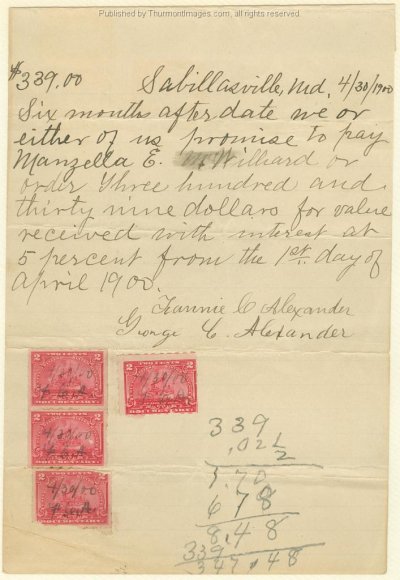 Published by ThurmontImages.com, all rights reserved.
$339.00
Sabillasville, Md. 4/30/1900
Six months after date we or
either of us promise to pay
Manzella E. Williard or
order Three hundred and
thirty nine dollars for value
received with interest at
5 percent from the 1st. day of
April 1900.
Fannie C Alexander
George C. Alexander
2 TWO CENTS 2
4/30/00
DOCUMENTARY
2 2
4/30/00
DOCUMENTARY
2 2
4/30/00
DOCUMENTARY
2 2
4/30/00
DOCUMENTARY
339
.02½
1.70
678
8.48
339
347.48